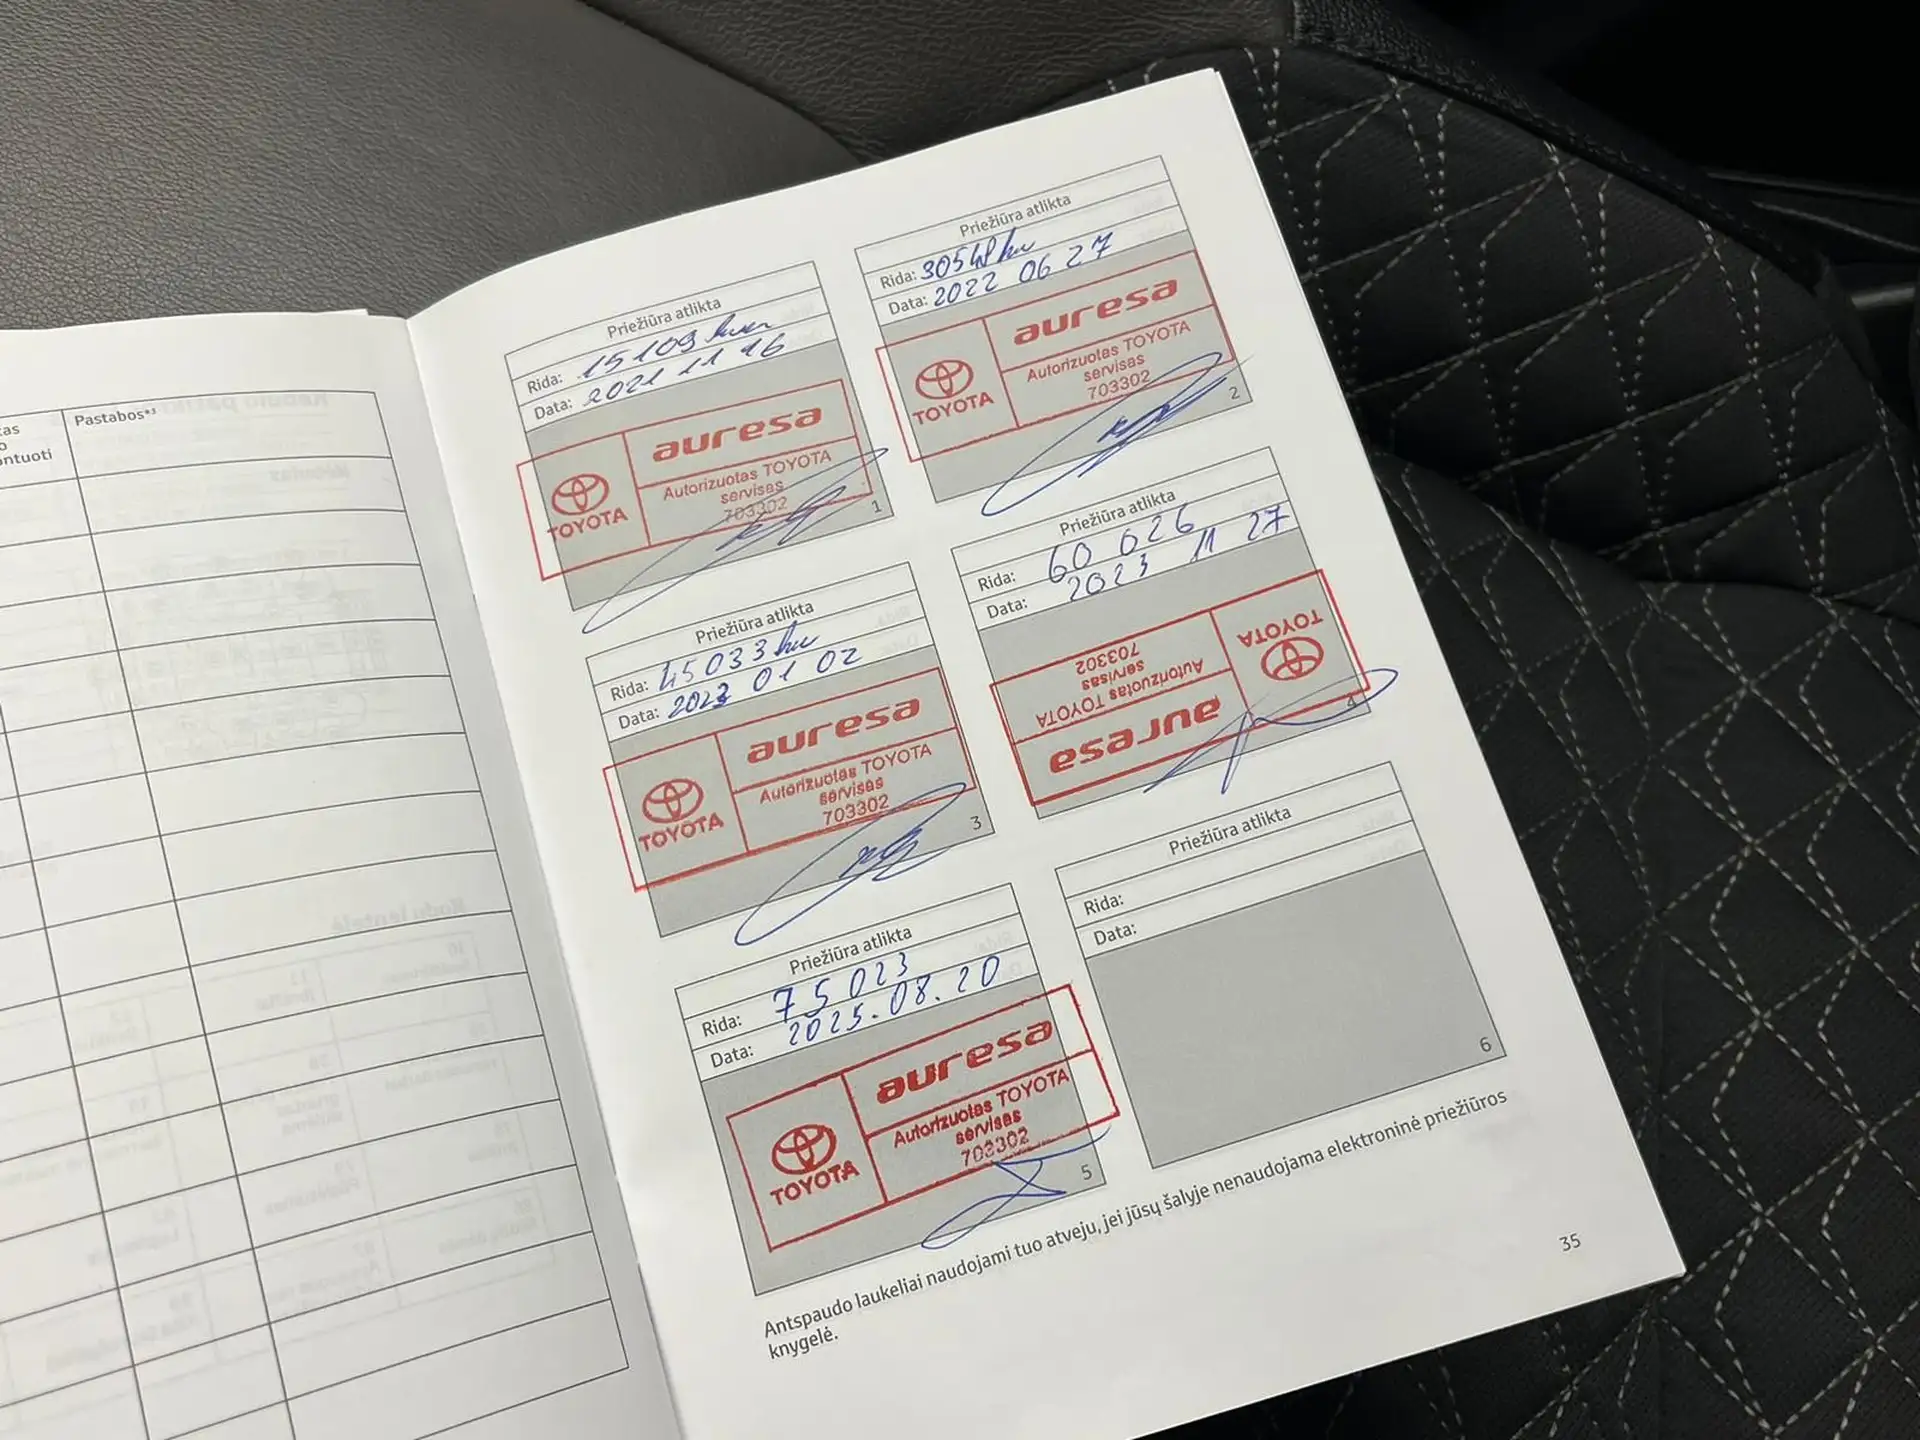 Pastabos*³
ntuoti
Priežiūra atlikta
Rida: 15109 km
Data: 2021 11 16
TOYOTA
auresa
Autorizuotas TOYOTA
servisas
703302
1
Priežiūra atlikta
Rida: 30548 km
Data: 2022 06 27
TOYOTA
auresa
Autorizuotas TOYOTA
servisas
703302
2
Priežiūra atlikta
Rida: 45033 km
Data: 2023 01 02
TOYOTA
auresa
Autorizuotas TOYOTA
servisas
703302
3
Priežiūra atlikta
Rida: 60 026
Data: 2023 11 27
TOYOTA
auresa
Autorizuotas TOYOTA
servisas
703302
4
Priežiūra atlikta
Rida: 75023
Data: 2025.08.20
TOYOTA
auresa
Autorizuotas TOYOTA
servisas
703302
5
Priežiūra atlikta
Rida:
Data:
6
Antspaudo laukeliai naudojami tuo atveju, jei jūsų šalyje nenaudojama elektroninė priežiūros
knygelė.
35